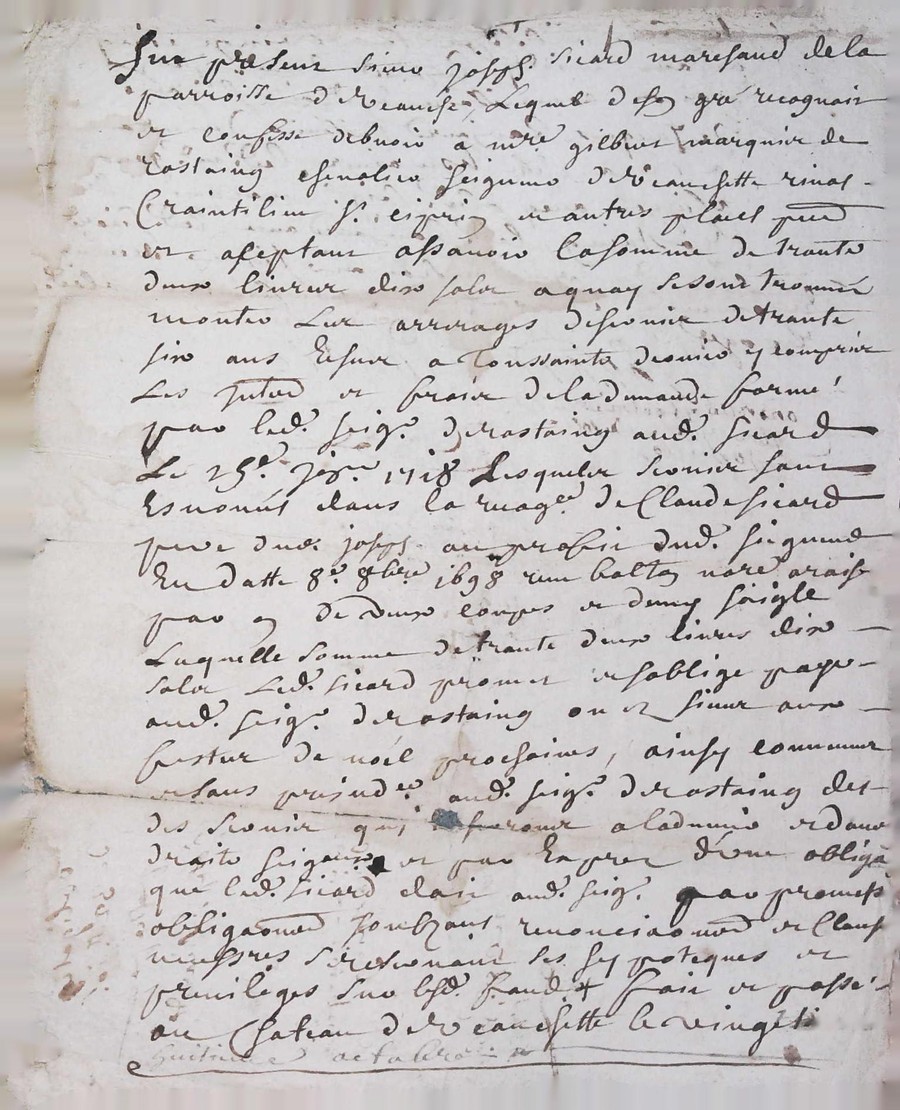 Fut présent sieur joseph sicard marchand de la
parroisse de Veauche, Lequel de son gré recognait
et confesse debvoir a mre gilbert marquis de
rastaing chevalier seigneur de Veauchette rivas
Craintilieu st ciprien et autres places
et aseptant assavoir la somme de trante
deux livres dix solz a quoy se sont trouvés
monter Les arrerages de servis de trante
six ans Eschus a Toussaints dernier y compris
Les et fraix de la demande formé
par led. seigr. de rastaing aud. sicard
Le 25e 1718 Lesquels servis sont
Esnoncés dans la de Claude sicard
pere dud. joseph au profit dud. seigneur
En datte 8e 8bre 1698
par an de deux coupes et demy soigle
Laquelle somme de trante deux livres dix
solz Led. sicard promet et s'oblige payer
aud. seigr. de rastaing ou es siens aux
festes de noél prochaines, ainsy
et sans prejudce aud. seigr. de rastaing des
des servis qui a ladvenir et
droits seigaux et par Exprez d'une obligaon
que led. sicard doit aud. seigr. par promesse
obligaons renonciaons et Clauses
se reservant ses hypoteques et
privileges sur fait et passé
au Chateau de Veauchette le vingt
huitieme octobre